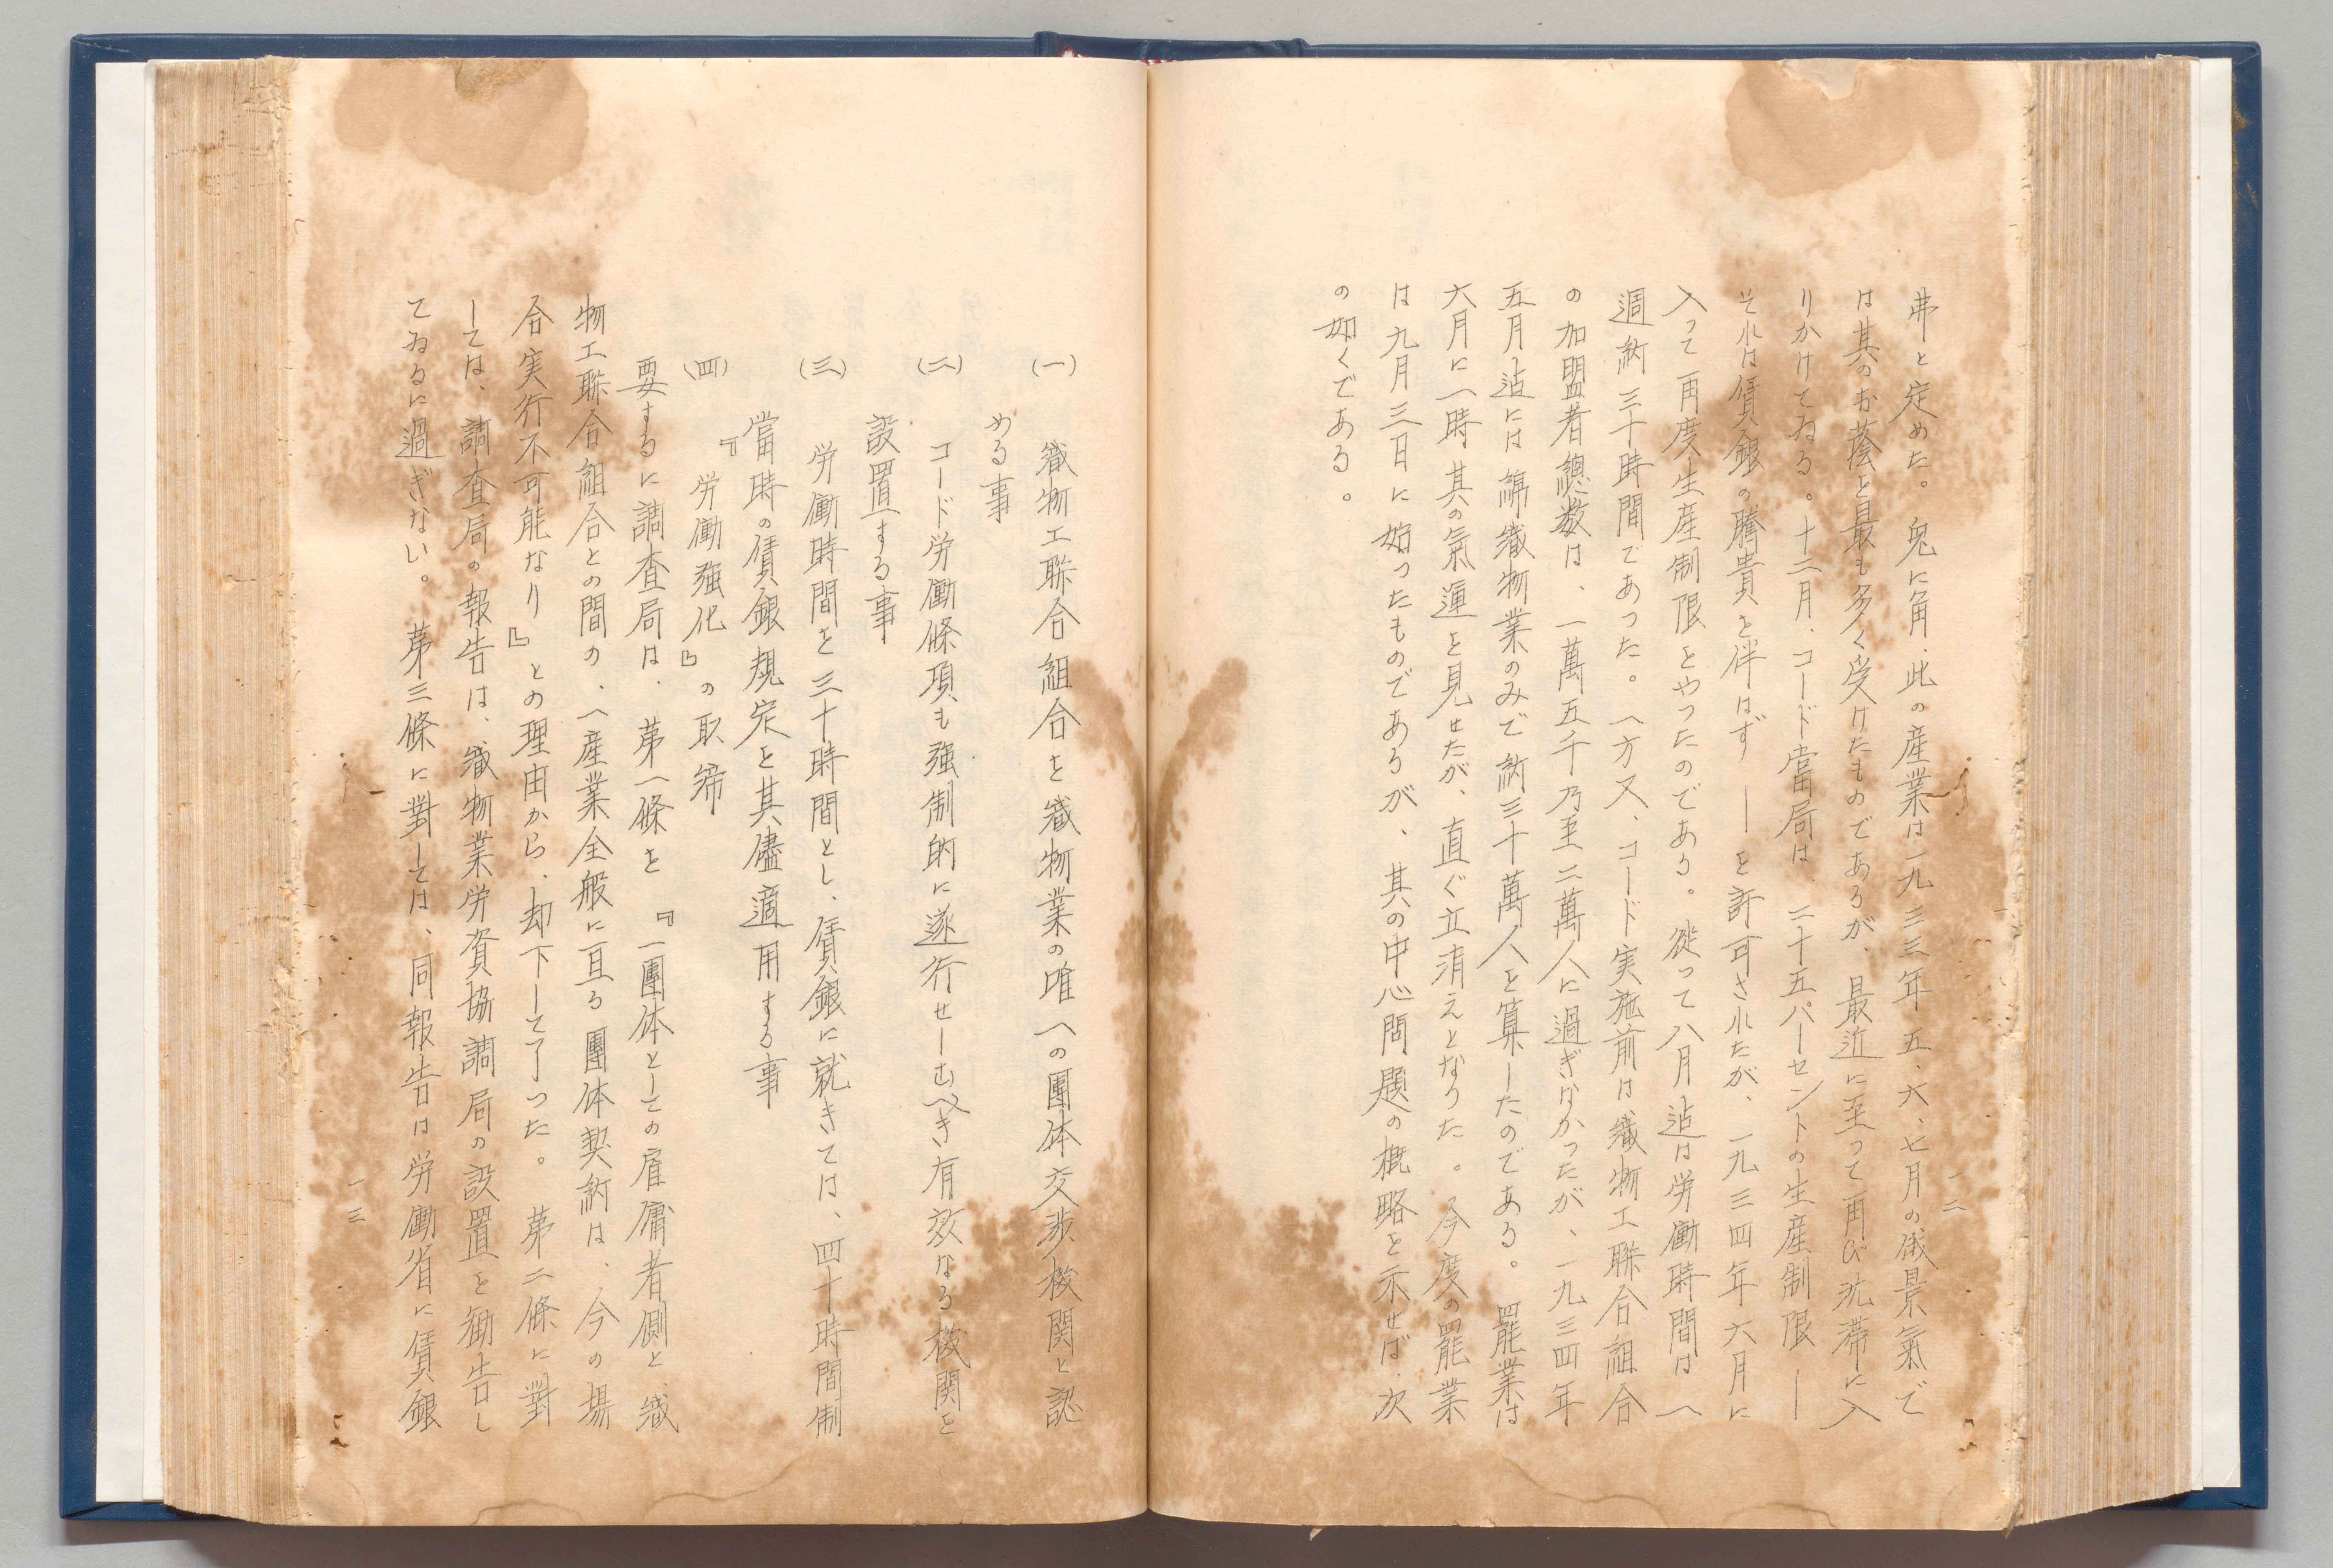 弗と定めた。兎に角、此の産業は一九三三年五、六、七月の俄景氣で
は其のお蔭を最も多く受けたものであるが、最近に至って再び沈滞に入
りかけてゐる。十二月、コード當局は、二十五パーセントの生産制限―
それは賃銀の騰貴を伴はず―を許可されたが、一九三四年六月に
入って再度生産制限をやったのである。從って八月迠は労働時間は一
週約三十時間であった。一方又、コード実施前は織物工聯合組合
の加盟者總数は、一萬五千乃至二萬人に過ぎなかったが、一九三四年
五月迠には綿織物業のみで約三十萬人を算したのである。罷業は
六月に一時其の氣運を見せたが、直ぐ立消えとなった。今度の罷業
は九月三日に始ったものであるが、其の中心問題の概略を示せば、次
の如くである。
一二
(一) 織物工聯合組合を織物業の唯一の團体交渉機関と認
める事
(二) コード労働條項も強制的に遂行せしむべき有效なる機関を
設置する事
(三) 労働時間を三十時間とし、賃銀に就きては、四十時間制
當時の賃銀規定を其儘適用する事
(四) 『労働強化』の取締
要するに調査局は、第一條を『一團体としての雇傭者側と、織
物工聯合組合との間の、一産業全般に亘る團体契約は、今の場
合実行不可能なり』との理由から、却下して了った。第二條に對
しては、調査局の報告は、織物業労資協調局の設置を勧告し
てゐるに過ぎない。第三條に對しては、同報告は労働省に賃銀
一三